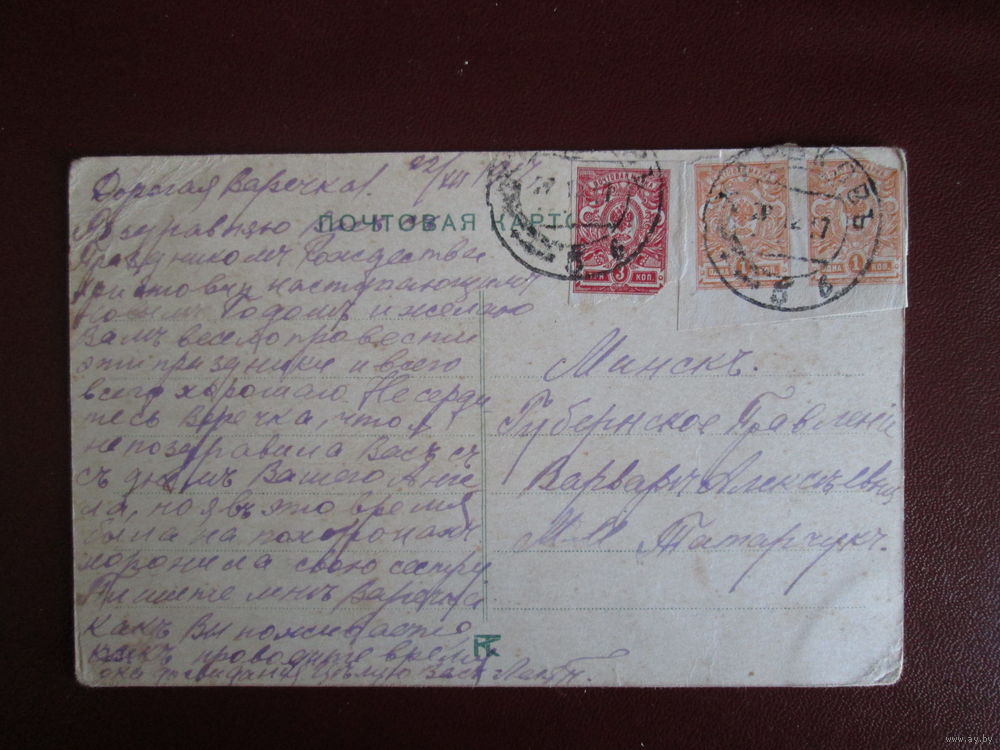 Дорогая Варечка!
22/XII 1917
ПОЧТОВАЯ КАРТО
Поздравляю Васъ съ
Праздникомъ Рождества
Христова и наступающимъ
Новымъ Годомъ и желаю
Вамъ весело провести
эти праздники и всего
всего хорошаго. Не серди
тесь Варечка, что я
не поздравила Васъ съ
съ днемъ Вашего Анге
ла, но я въ это время
была на похоронахъ
хоронила свою сестру
Пишите мнѣ Варечка
какъ Вы поживаете
какъ проводите время
досвиданія Цѣлую Васъ
3 КОП.
1 КОП.
ОДНА 1 КОП.
Минскъ.
Губернское Правленіе
Варварѣ Алексѣевнѣ
М-М Татарчукъ.
www.ay.by